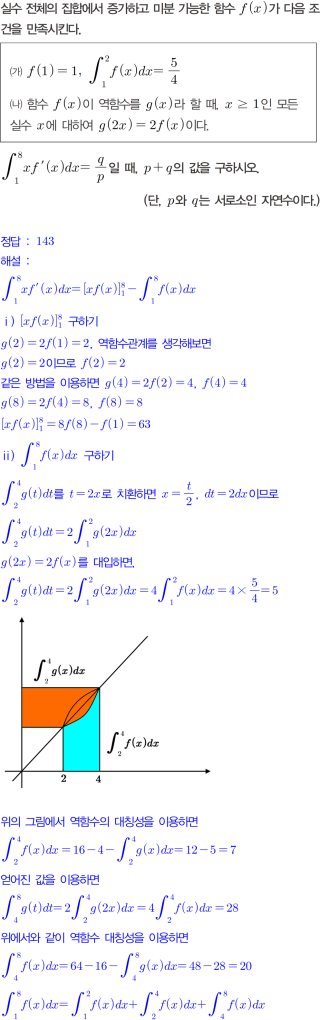 실수 전체의 집합에서 증가하고 미분 가능한 함수 f(x)가 다음 조
건을 만족시킨다.
㈎ f(1)=1, ∫₁² f(x)dx = 5/4
㈏ 함수 f(x)의 역함수를 g(x)라 할 때, x ≥ 1인 모든
실수 x에 대하여 g(2x)=2f(x)이다.
∫₁⁸ xf′(x)dx = q/p 일 때, p+q의 값을 구하시오.
(단, p와 q는 서로소인 자연수이다.)
정답 : 143
해설 :
∫₁⁸ xf′(x)dx = [xf(x)]₁⁸ − ∫₁⁸ f(x)dx
ⅰ) [xf(x)]₁⁸ 구하기
g(2)=2f(1)=2, 역함수관계를 생각해보면
g(2)=2이므로 f(2)=2
같은 방법을 이용하면 g(4)=2f(2)=4, f(4)=4
g(8)=2f(4)=8, f(8)=8
[xf(x)]₁⁸ = 8f(8)−f(1)=63
ⅱ) ∫₁⁸ f(x)dx 구하기
∫₂⁴ g(t)dt를 t=2x로 치환하면 x = t/2, dt=2dx이므로
∫₂⁴ g(t)dt = 2∫₁² g(2x)dx
g(2x)=2f(x)를 대입하면,
∫₂⁴ g(t)dt = 2∫₁² g(2x)dx = 4∫₁² f(x)dx = 4 × 5/4 = 5
∫₂⁴ g(x)dx
∫₂⁴ f(x)dx
2 4
위의 그림에서 역함수의 대칭성을 이용하면
∫₂⁴ f(x)dx = 16−4−∫₂⁴ g(x)dx = 12−5 = 7
얻어진 값을 이용하면
∫₄⁸ g(t)dt = 2∫₂⁴ g(2x)dx = 4∫₂⁴ f(x)dx = 28
위에서와 같이 역함수 대칭성을 이용하면
∫₄⁸ f(x)dx = 64−16−∫₄⁸ g(x)dx = 48−28 = 20
∫₁⁸ f(x)dx = ∫₁² f(x)dx + ∫₂⁴ f(x)dx + ∫₄⁸ f(x)dx